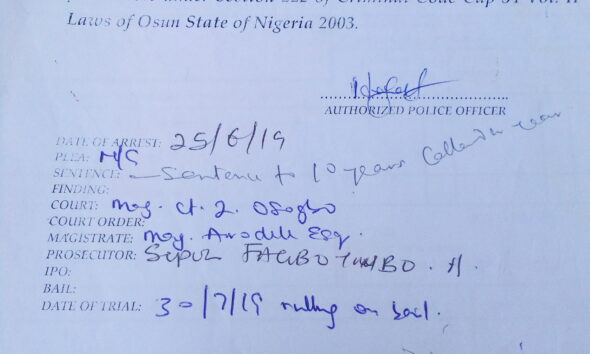 under Section 222 of Criminal Code Cap 34 Vol. II
Laws of Osun State of Nigeria 2003.
AUTHORIZED POLICE OFFICER
DATE OF ARREST: 25/6/19
PLEA: N/G
SENTENCE: Sentence to 10 years
FINDING:
COURT: Mag. Ct. 2. Osogbo
COURT ORDER:
MAGISTRATE: Mag. Awodele Esq.
PROSECUTOR: Supol
IPO:
BAIL:
DATE OF TRIAL: 30/7/19 rulling on bail.